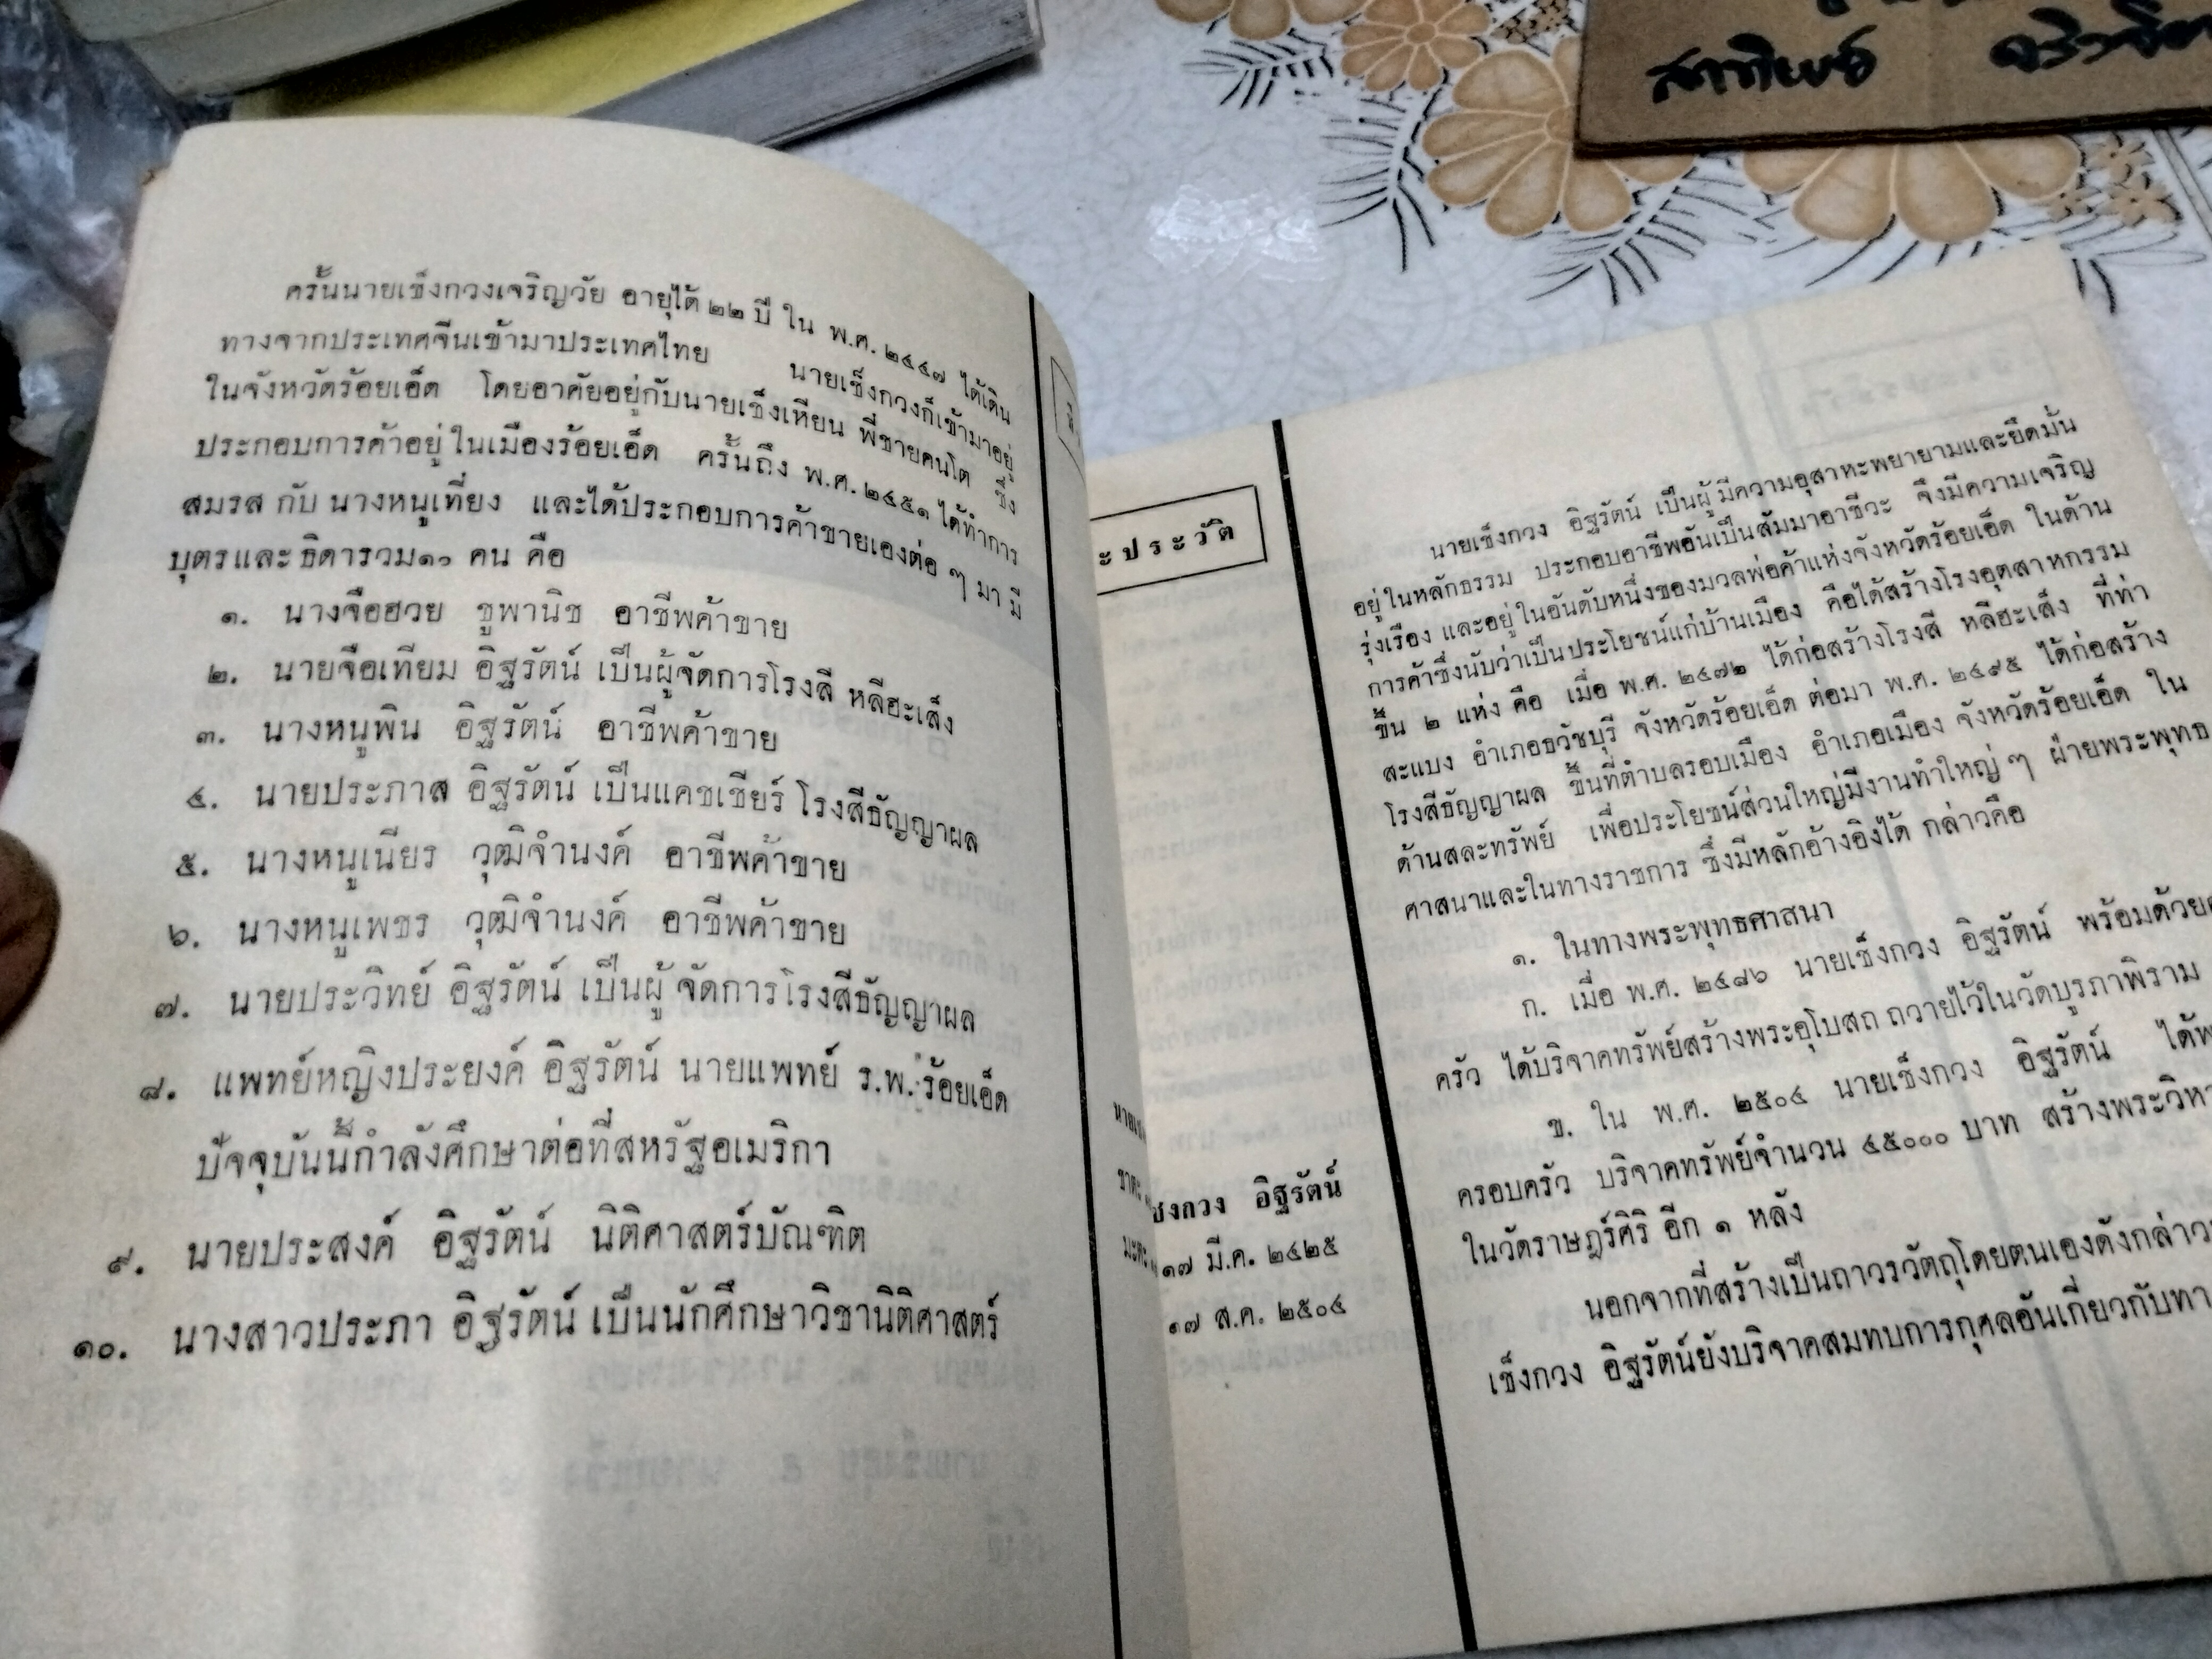 ครั้นนายเซ็งกวงเจริญวัย อายุได้ ๒๒ ปี ใน พ.ศ. ๒๔๔๗ ได้เดิน
ทางจากประเทศจีนเข้ามาประเทศไทย นายเซ็งกวงก็เข้ามาอยู่
ในจังหวัดร้อยเอ็ด โดยอาศัยอยู่กับนายเซ็งเหียน พี่ชายคนโต ซึ่ง
ประกอบการค้าอยู่ในเมืองร้อยเอ็ด ครั้นถึง พ.ศ. ๒๔๕๑ ได้ทำการ
สมรส กับ นางหนูเที่ยง และได้ประกอบการค้าขายเองต่อ ๆ มา มี
บุตรและธิดารวม๑๐ คน คือ
๑. นางจือฮวย ชูพานิช อาชีพค้าขาย
๒. นายจือเทียม อิฐรัตน์ เป็นผู้จัดการโรงสี หลีฮะเส็ง
๓. นางหนูพิน อิฐรัตน์ อาชีพค้าขาย
๔. นายประภาส อิฐรัตน์ เป็นแคชเชียร์ โรงสีธัญญาผล
๕. นางหนูเนียร วุฒิจำนงค์ อาชีพค้าขาย
๖. นางหนูเพชร วุฒิจำนงค์ อาชีพค้าขาย
๗. นายประวิทย์ อิฐรัตน์ เป็นผู้จัดการโรงสีธัญญาผล
๘. แพทย์หญิงประยงค์ อิฐรัตน์ นายแพทย์ ร.พ. ร้อยเอ็ด
ปัจจุบันนี้กำลังศึกษาต่อที่สหรัฐอเมริกา
๙. นายประสงค์ อิฐรัตน์ นิติศาสตร์บัณฑิต
๑๐. นางสาวประภา อิฐรัตน์ เป็นนักศึกษาวิชานิติศาสตร์
ะประวัติ
ซงกวง อิฐรัตน์
๑๗ มี.ค. ๒๔๒๕
๑๗ ส.ค. ๒๕๐๔
นายเซ็งกวง อิฐรัตน์ เป็นผู้มีความอุสาหะพยายามและยึดมั่น
อยู่ในหลักธรรม ประกอบอาชีพอันเป็นสัมมาอาชีวะ จึงมีความเจริญ
รุ่งเรือง และอยู่ในอันดับหนึ่งของมวลพ่อค้าแห่งจังหวัดร้อยเอ็ด ในด้าน
การค้าซึ่งนับว่าเป็นประโยชน์แก่บ้านเมือง คือได้สร้างโรงอุตสาหกรรม
ขึ้น ๒ แห่ง คือ เมื่อ พ.ศ. ๒๔๗๒ ได้ก่อสร้างโรงสี หลีฮะเส็ง ที่ท่า
สะแบง อำเภอธวัชบุรี จังหวัดร้อยเอ็ด ต่อมา พ.ศ. ๒๔๙๕ ได้ก่อสร้าง
โรงสีธัญญาผล ขึ้นที่ตำบลรอบเมือง อำเภอเมือง จังหวัดร้อยเอ็ด ใน
ด้านสละทรัพย์ เพื่อประโยชน์ส่วนใหญ่มีงานทำใหญ่ ๆ ฝ่ายพระพุทธ
ศาสนาและในทางราชการ ซึ่งมีหลักอ้างอิงได้ กล่าวคือ
๑. ในทางพระพุทธศาสนา
ก. เมื่อ พ.ศ. ๒๔๘๖ นายเซ็งกวง อิฐรัตน์ พร้อมด้วย
ครัว ได้บริจาคทรัพย์สร้างพระอุโบสถ ถวายไว้ในวัดบูรภาพิราม
ข. ใน พ.ศ. ๒๕๐๔ นายเซ็งกวง อิฐรัตน์ ได้
ครอบครัว บริจาคทรัพย์จำนวน ๔๕๐๐๐ บาท สร้างพระวิหา
ในวัดราษฎร์ศิริ อีก ๑ หลัง
นอกจากที่สร้างเป็นถาวรวัตถุโดยตนเองดังกล่าว
เซ็งกวง อิฐรัตน์ยังบริจาคสมทบการกุศลอันเกี่ยวกับทา